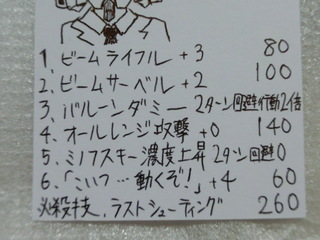 1、ビームライフル +3 80
2、ビームサーベル +2 100
3、バルーンダミー 2ターン回避行動2倍
4、オールレンジ攻撃 +0 140
5、ミノフスキー濃度上昇 2ターン回避0
6、「こいつ…動くぞ!」+4 60
必殺技、ラストシューティング 260